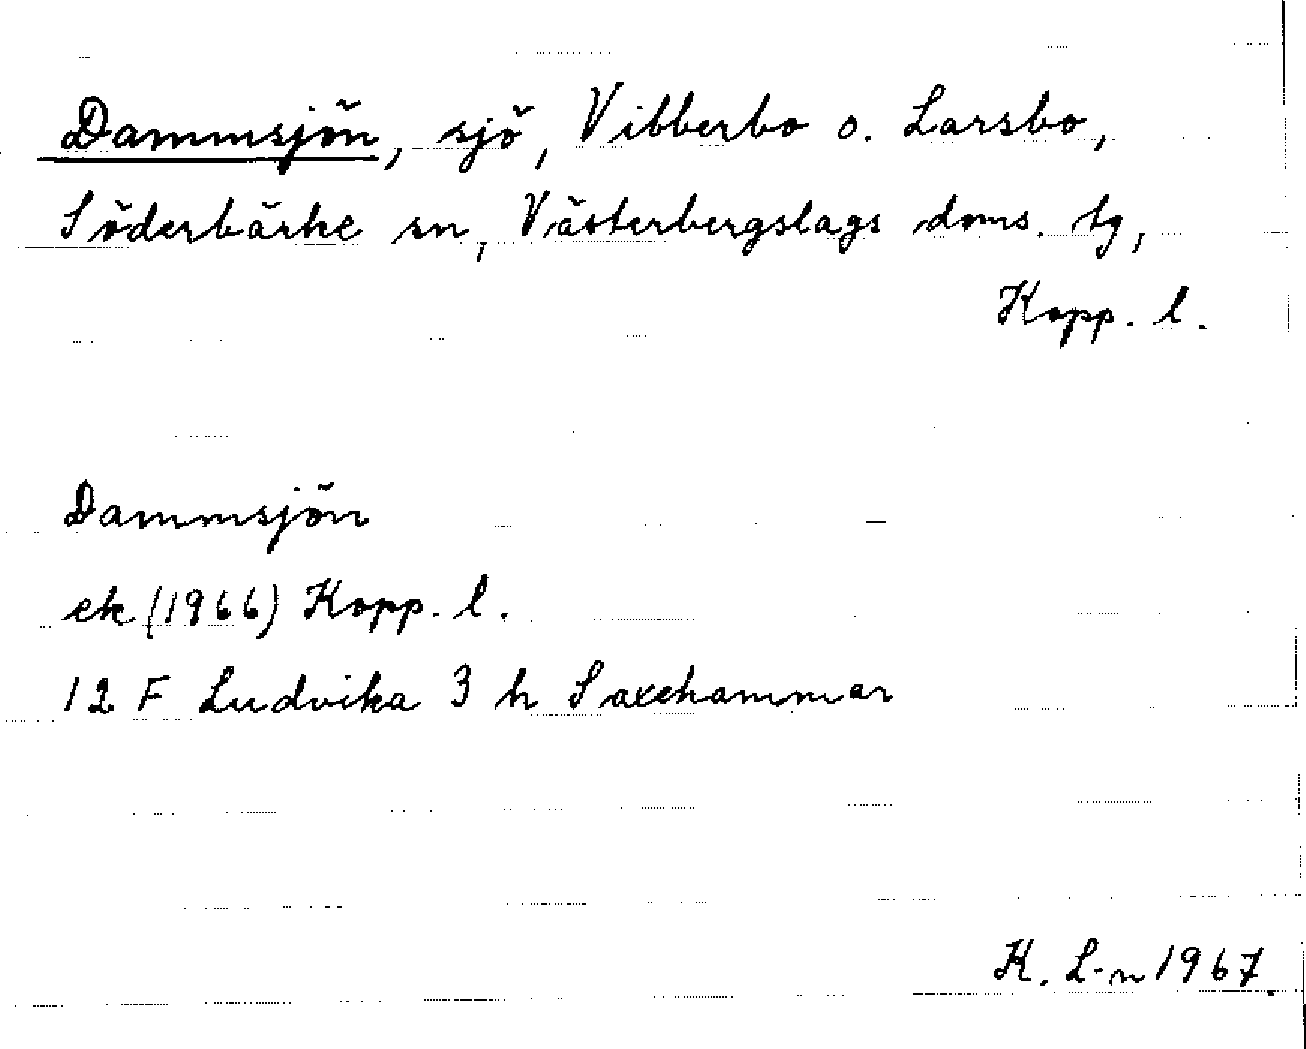 Dammsjön, sjö, Vibberbo o. Larsbo,
Söderbärke sn, Västerbergslags doms. tg,
Kopp. l.
Dammsjön
ek (1966) Kopp. l.
12 F Ludvika 3 h Saxehammar
K. L-n 1967.